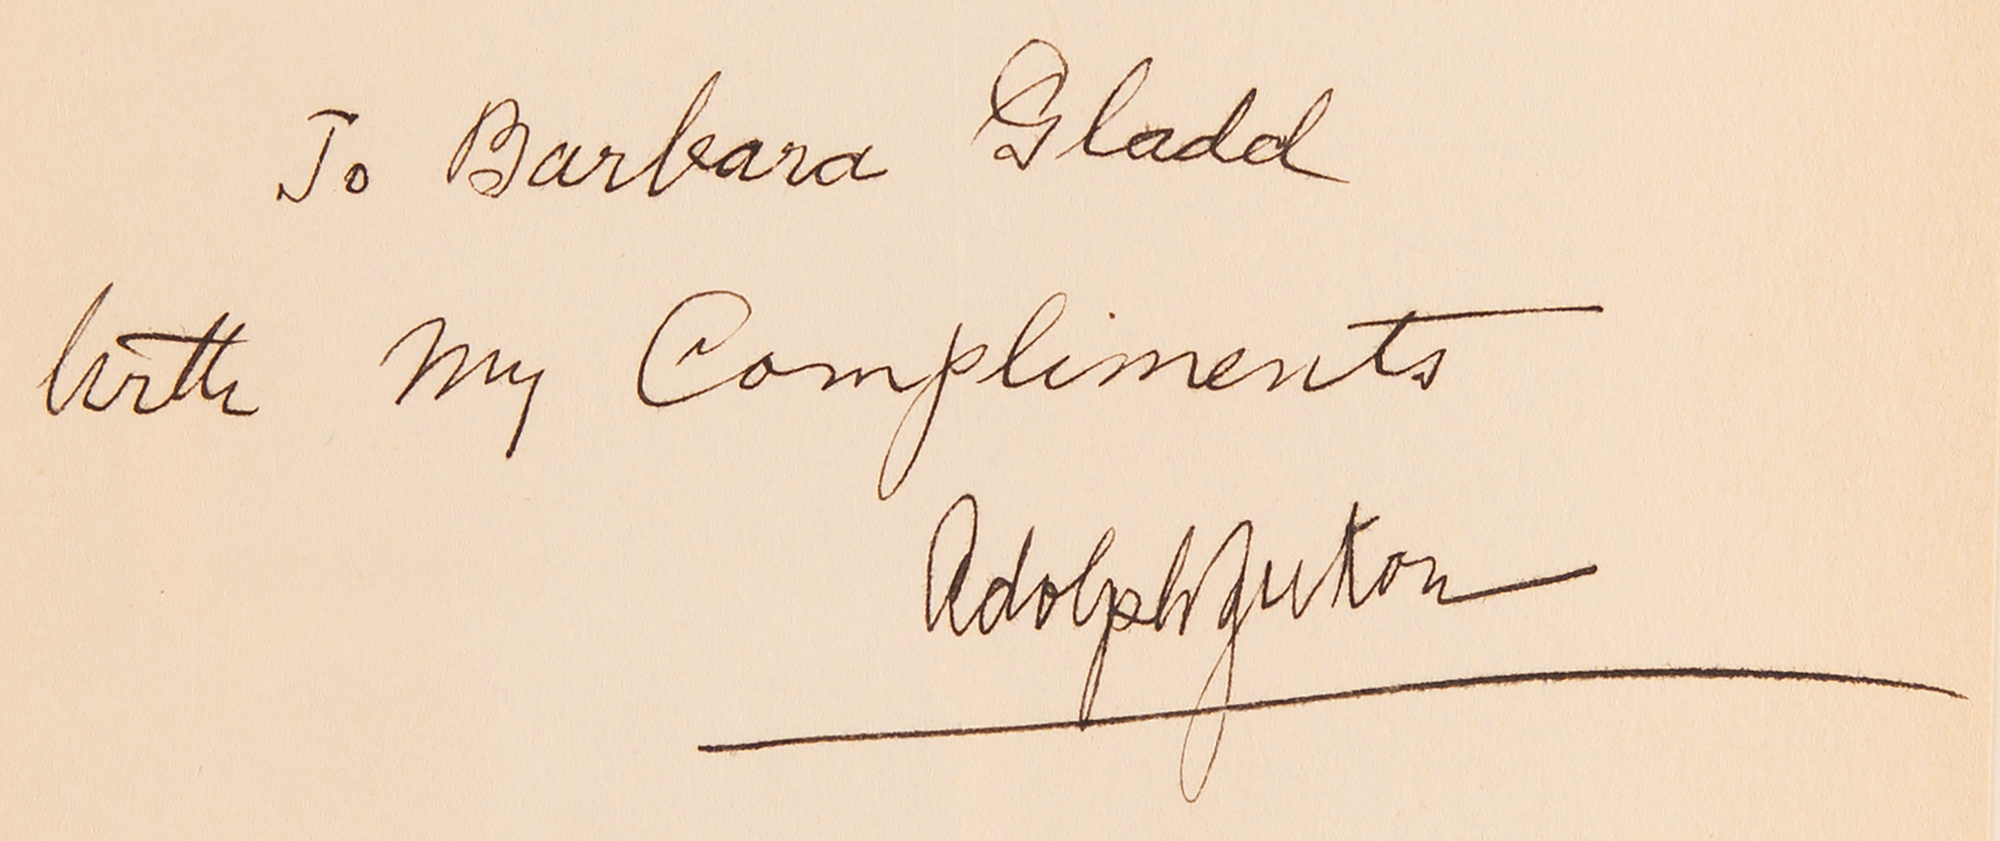 To Barbara Gladd
With My Compliments
Adolph Zukor